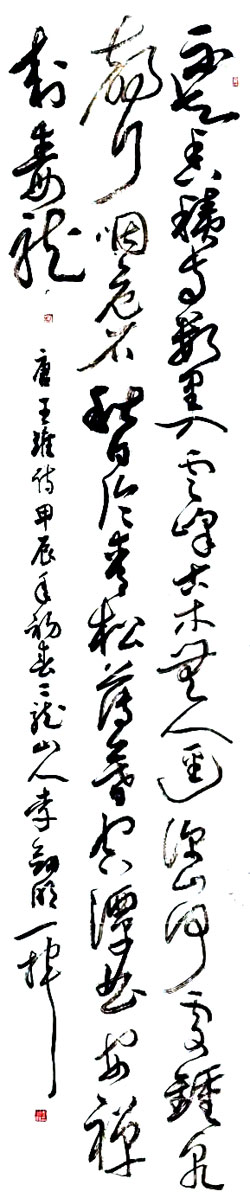 不知香積寺數里入雲峰古木無人逕深山何處鐘泉
聲川咽危石秋日泠青松薄暮空潭曲安禪
制毒龍
唐王維詩甲辰年初春二龍山人李 一揮